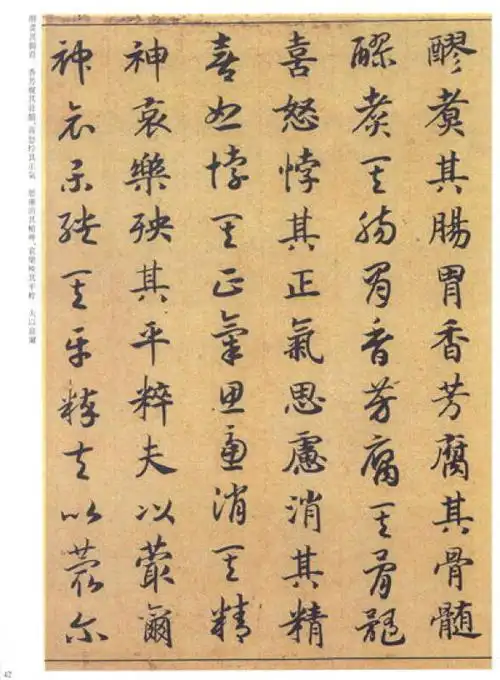 醪煑其腸胃香芳腐其骨髓
醪煑其腸胃香芳腐其骨髓
喜怒悖其正氣思慮消其精
喜怒悖其正氣思慮消其精
神哀樂殃其平粹夫以蕞爾
神哀樂殃其平粹夫以蕞尔
醪煑其腸胃、香芳腐其骨髓、喜怒悖其正氣、思慮消其精神、哀樂殃其平粹、夫以蕞爾
42